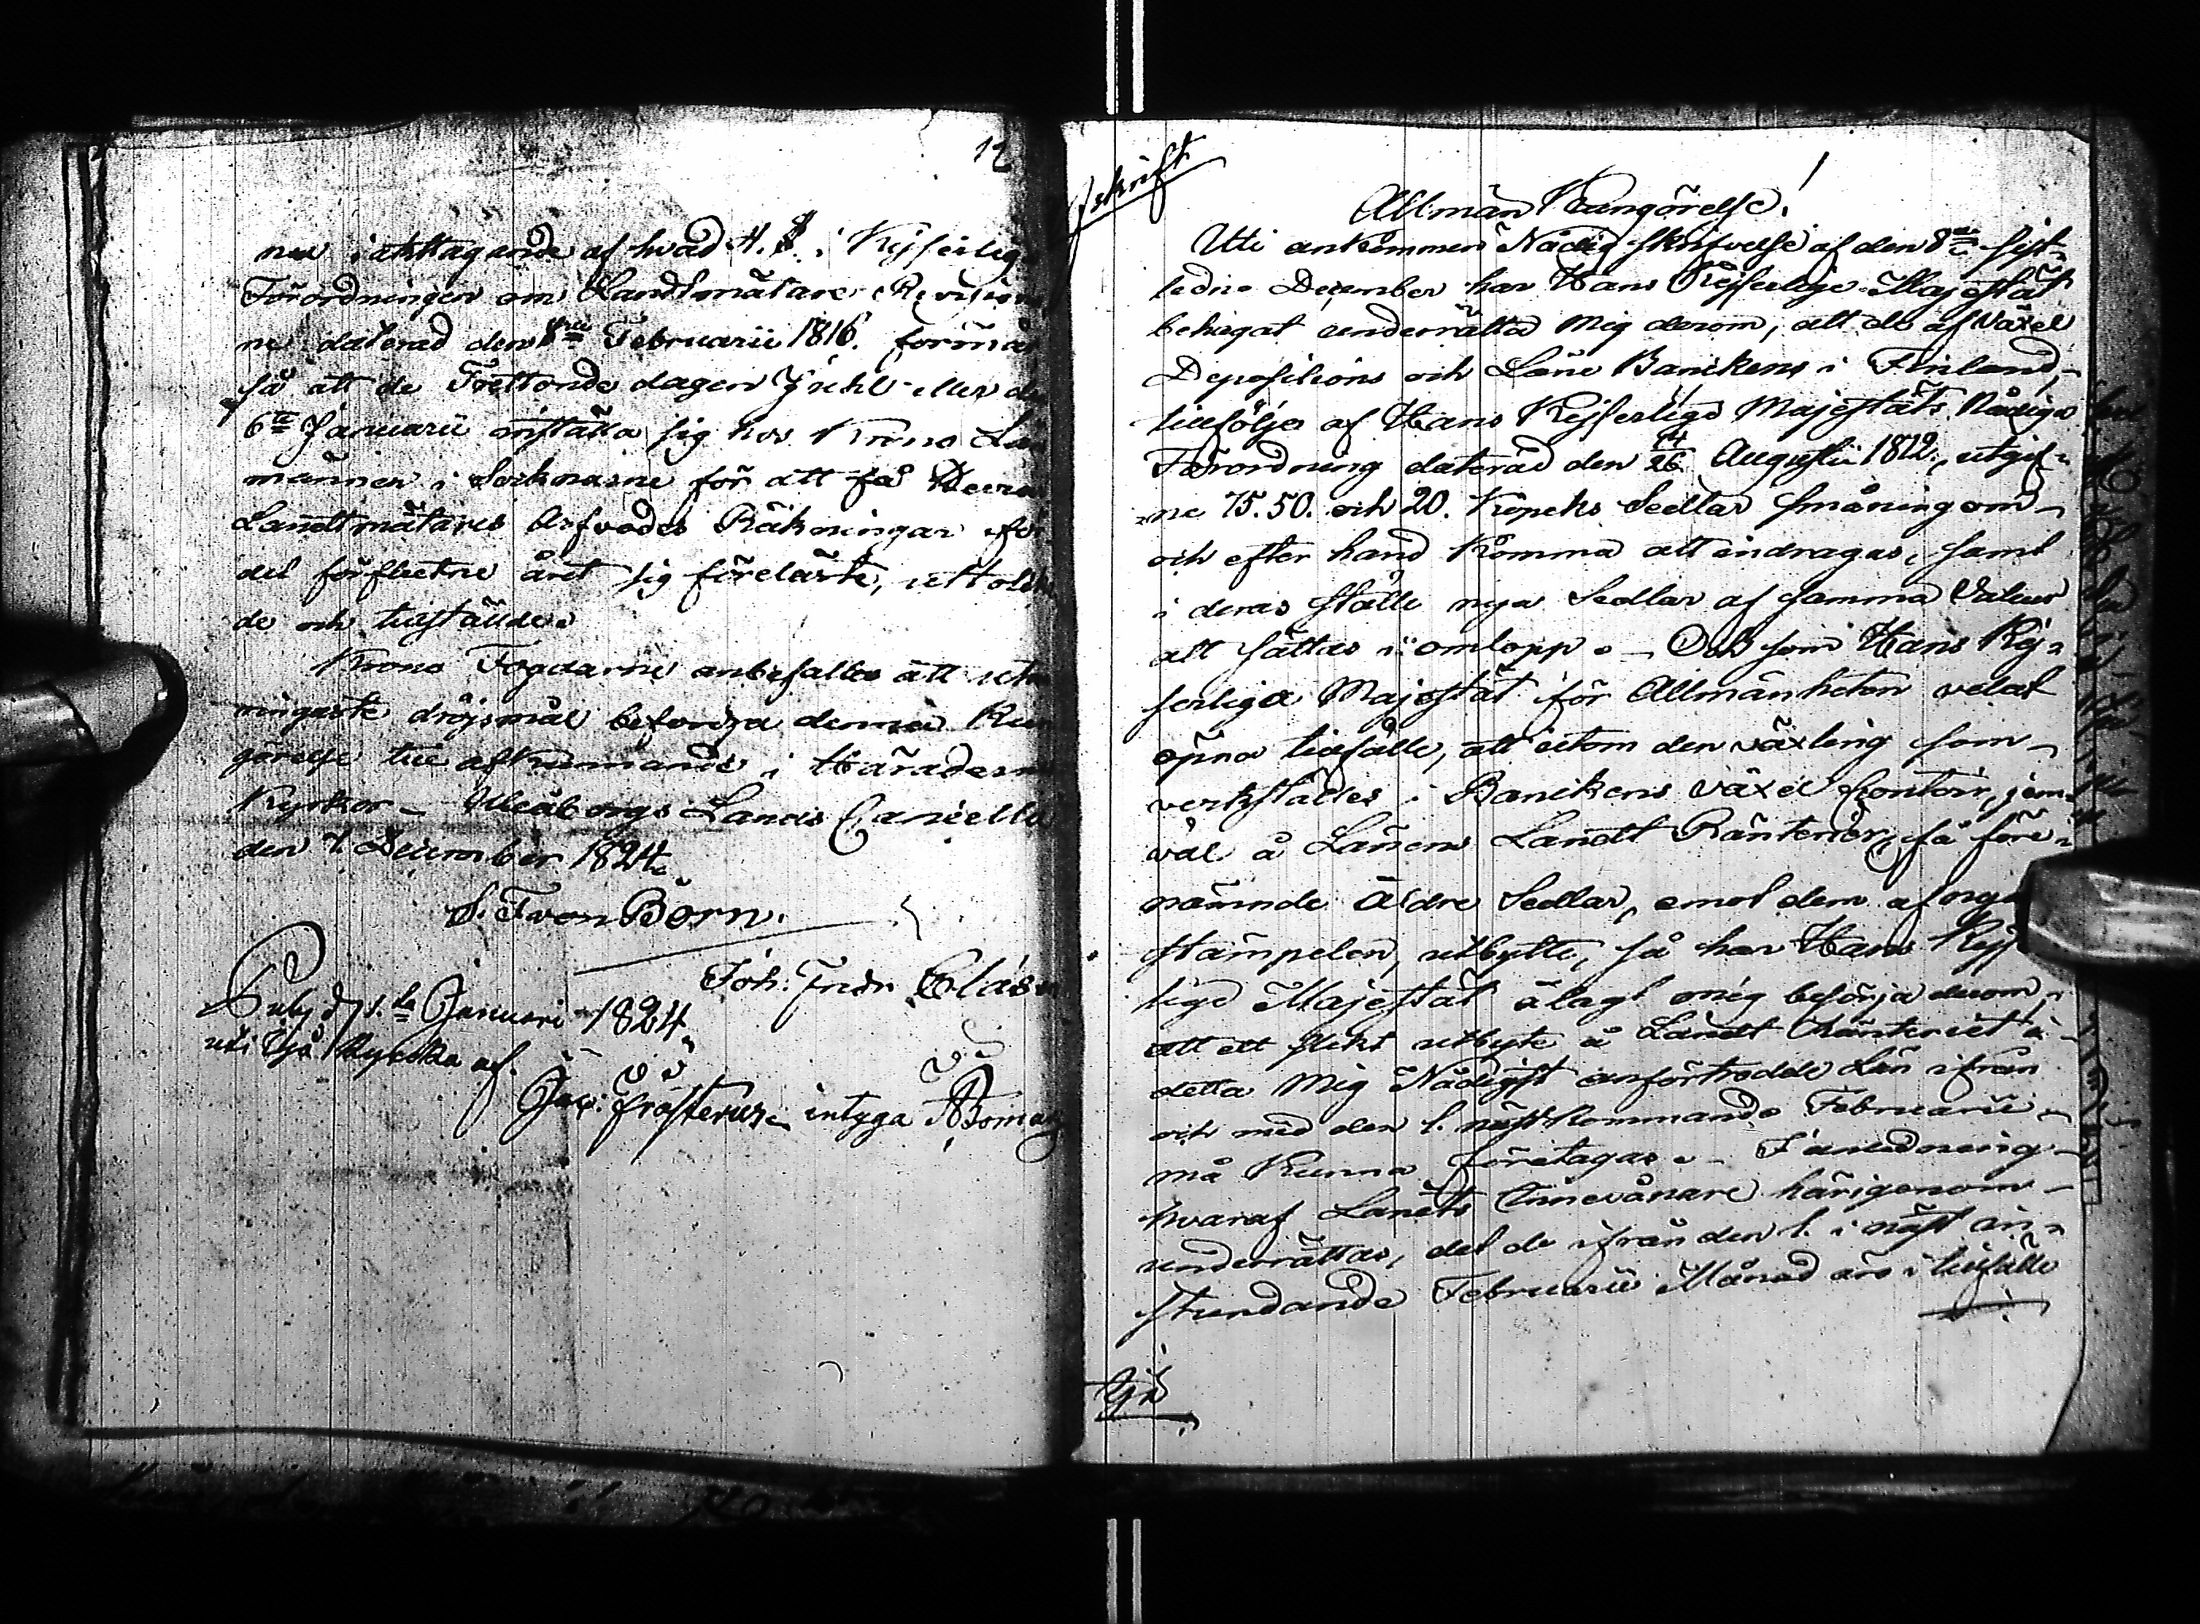 12
ne iakttagande af hvad 4. §. i Kejserlig
Förordningen om Landtmätare Revision
ne daterad den Februarii 1816. förmår
så att de Trettonde dagen Juhl eller de
6te Januarii inställa sig hos Krono Län
männen i Socknarne för att få
Landtmätares Arfvodes Räkningar för
det förflutne året sig förelaste, uttolka
de och tillstälde.
Krono Fogdarne anbefalles att utan
ringaste dröjsmål befordra denna Kun
görelse till afkunnande i Häradernes
Kyrkor – Uleåborgs Lands Cancellie
den 7 December 1824.
S. F. von Börn.
Joh. Fredr.
Publ. d. 1.ste Januari 1824
uti Ijå Kyrcka af.
Jac. Frosterus. intyga
fskrift
Allmän Kungörelse!
Uti ankommen Nådig skrifvelse af den 8de sist-
ledne December har Hans Kejserlige Majestät
behagat underrätta Mig derom, att de af Växel
Depositions och Låne Banckens i Finland,
tillfölje af Hans Kejserlige Majestäts Nådiga
Förordning daterad den 14/26 Augustii 1812., utgif-
ne 75. 50. och 20. Kopeks Sedlar småningom
och efter hand komma att indragas, samt
i deras ställe nya Sedlar af samma Valeur
att sättas i omlopp. – Och som Hans Kej-
serliga Majestät för Allmänheten velat
öpna tillfälle, att utom den växling som
verkställes i Banckens växel Contoir, jem-
väl å Länens Landt Ränterier, få före-
nämnde äldre Sedlar, emot dem af nya
stämpelen, utbytte, så har Hans Kejs
lige Majestät ålagt mig besörja derom,
att ett slikt utbyte å Landt Ränteriet i
detta Mig Nådigst anförtrodde Län ifrån
och med den 1. nästkommande Februarii
må kunna företagas. – I anledning
hvaraf Länets Innevånare härigenom
underrättas, det de ifrån den 1. i näst in-
stundande Februarii Månad äro i tillfälle
Ijå